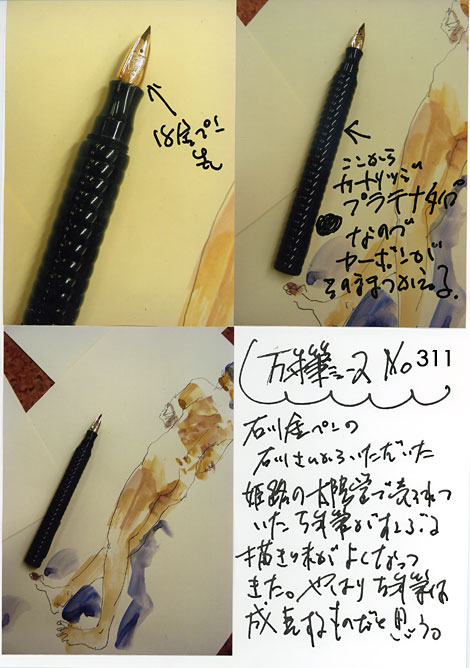 18金ペン
先
ここから
カートリッジ
プラチナタイプ
なので
カーボンが
そのままつかえる。
万年筆ニュース No 311
石川金ペンの
石川さんからいただいた
姫路の で売られて
いた万年筆がすこぶる
描き味がよくなって
きた。やはり万年筆は
ものだと思う。